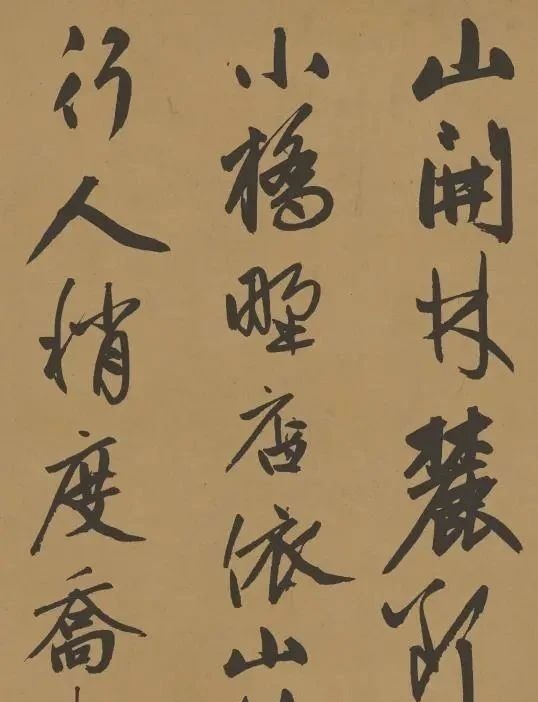 山開林麓斷
小橋野店依山
行人稍度喬